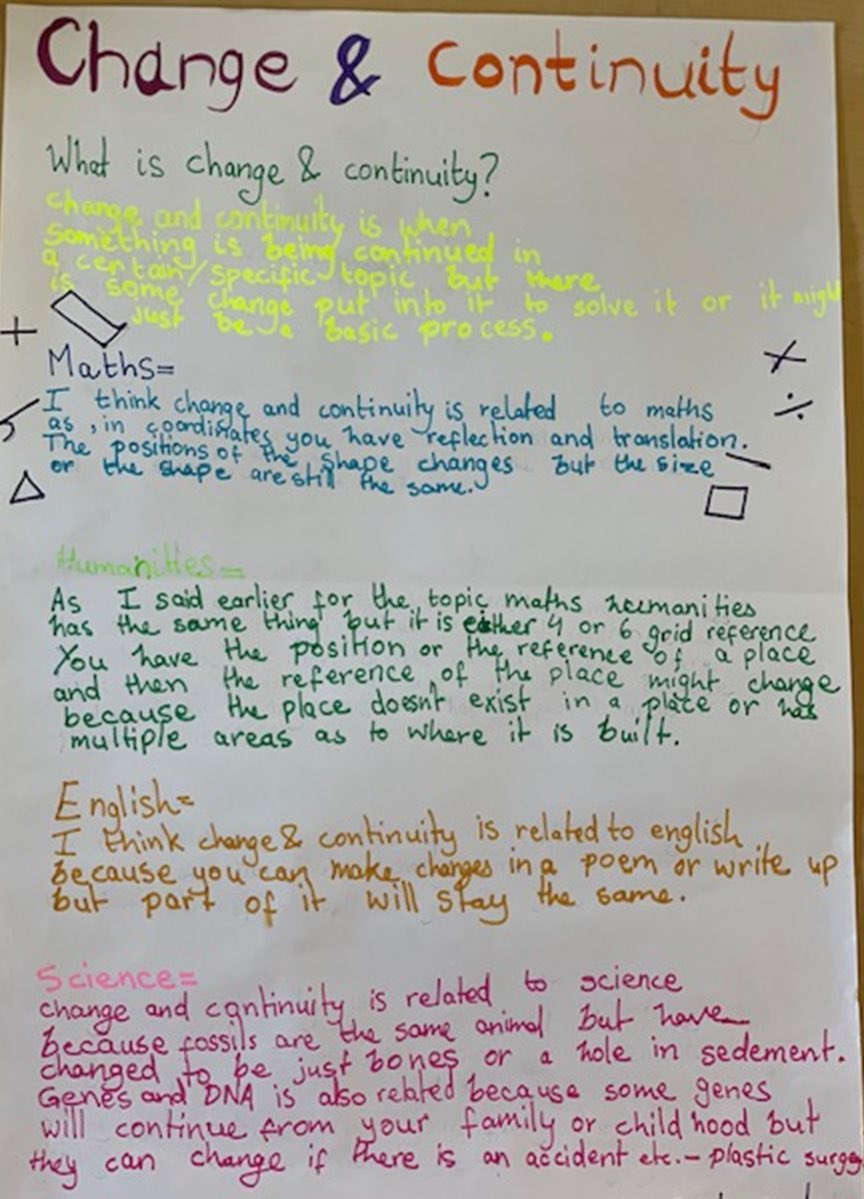 Change & Continuity
What is change & continuity?
change and continuity is when
something is being continued in
a certain/specific topic but there
is some change put into it to solve it or it might
just be a basic process.
Maths=
I think change and continuity is related to maths
as, in coordinates you have reflection and translation.
The positions of the shape changes but the size
or the shape are still the same.
Humanities=
As I said earlier for the topic maths humanities
has the same thing but it is either 4 or 6 grid reference
You have the position or the reference of a place
and then the reference of the place might change
because the place doesn't exist in a place or has
multiple areas as to where it is built.
English=
I think change & continuity is related to english
because you can make changes in a poem or write up
but part of it will stay the same.
Science=
change and continuity is related to science
because fossils are the same animal but have
changed to be just bones or a hole in sedement.
Genes and DNA is also related because some genes
will continue from your family or childhood but
they can change if there is an accident etc. - plastic surge